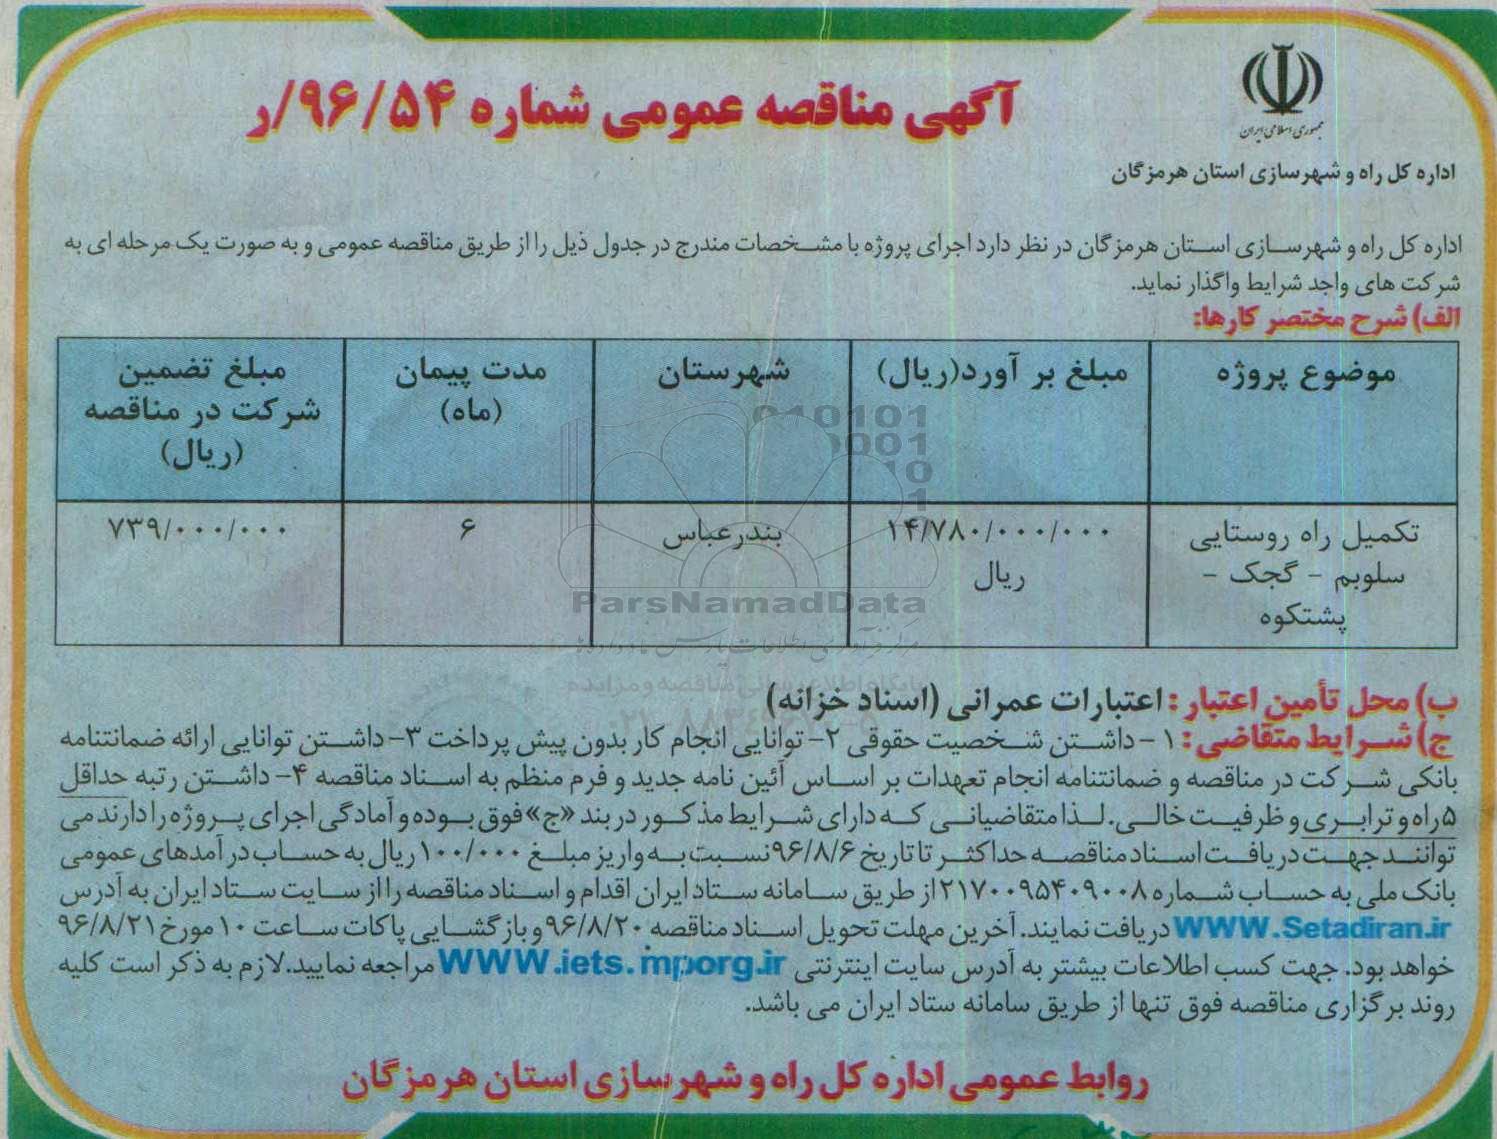 جمهوری اسلامی ایران
آگهی مناقصه عمومی شماره ۹۶/۵۴/ر
اداره کل راه و شهرسازی استان هرمزگان
اداره کل راه و شهرسازی استان هرمزگان در نظر دارد اجرای پروژه با مشخصات مندرج در جدول ذیل را از طریق مناقصه عمومی و به صورت یک مرحله ای به
شرکت های واجد شرایط واگذار نماید.
الف) شرح مختصر کارها:
موضوع پروژه
مبلغ بر آورد(ریال)
شهرستان
مدت پیمان
(ماه)
مبلغ تضمین
شرکت در مناقصه
(ریال)
تکمیل راه روستایی
سلوبم - گجک -
پشتکوه
۱۴/۷۸۰/۰۰۰/۰۰۰
ریال
بندرعباس
۶
۷۳۹/۰۰۰/۰۰۰
ParsNamadData
ب) محل تأمین اعتبار: اعتبارات عمرانی (اسناد خزانه)
ج) شرایط متقاضی: ۱- داشتن شخصیت حقوقی ۲- توانایی انجام کار بدون پیش پرداخت ۳- داشتن توانایی ارائه ضمانتنامه
بانکی شرکت در مناقصه و ضمانتنامه انجام تعهدات بر اساس آئین نامه جدید و فرم منظم به اسناد مناقصه ۴- داشتن رتبه حداقل
۵ راه و ترابری و ظرفیت خالی. لذا متقاضیانی که دارای شرایط مذکور در بند «ج» فوق بوده و آمادگی اجرای پروژه را دارند می
توانند جهت دریافت اسناد مناقصه حداکثر تا تاریخ ۹۶/۸/۶ نسبت به واریز مبلغ ۱۰۰/۰۰۰ ریال به حساب درآمدهای عمومی
بانک ملی به حساب شماره ۲۱۷۰۰۹۵۴۰۹۰۰۸ از طریق سامانه ستاد ایران اقدام و اسناد مناقصه را از سایت ستاد ایران به آدرس
WWW.Setadiran.ir دریافت نمایند. آخرین مهلت تحویل اسناد مناقصه ۹۶/۸/۲۰ و بازگشایی پاکات ساعت ۱۰ مورخ ۹۶/۸/۲۱
خواهد بود. جهت کسب اطلاعات بیشتر به آدرس سایت اینترنتی WWW.iets.mporg.ir مراجعه نمایید. لازم به ذکر است کلیه
روند برگزاری مناقصه فوق تنها از طریق سامانه ستاد ایران می باشد.
روابط عمومی اداره کل راه و شهرسازی استان هرمزگان